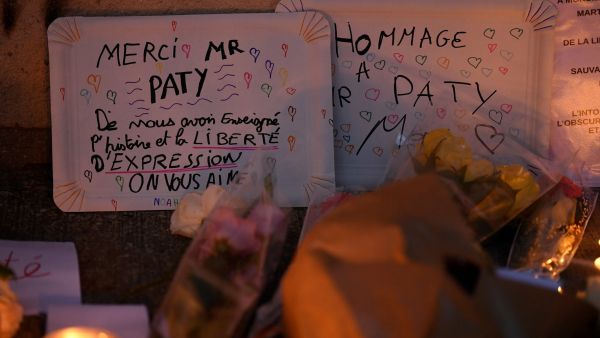 MERCI MR
PATY
De NOUS AVOIR ENSEIGNÉ
L'histoire et la LIBERTÉ
D'EXPRESSION
ON VOUS AIME
NOAH
HOMMAGE
A
MR PATY
DE LA LI
SAUVA
L'INTO
L'OBSCUR
té